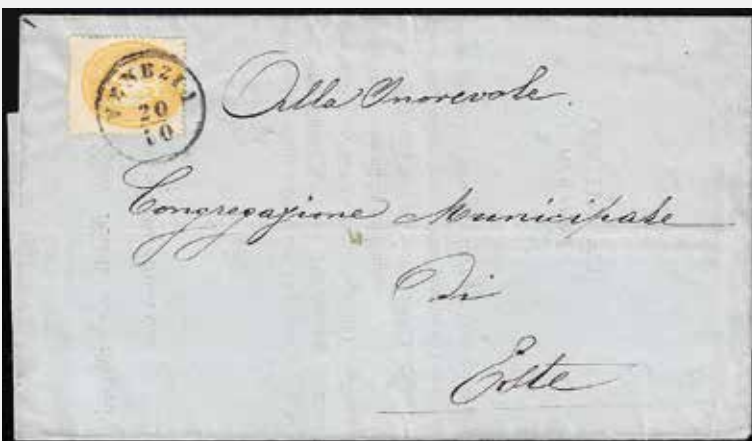 VENEZIA
20
10
Alla Onorevole
Congregazione Municipale
di
Este